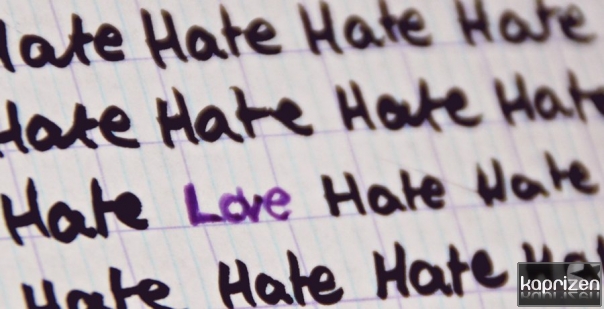 Hate Hate Hate Hate
Hate Hate Hate Hate
Hate Love Hate Hate
Hate Hate Hate Hate
kaprizen